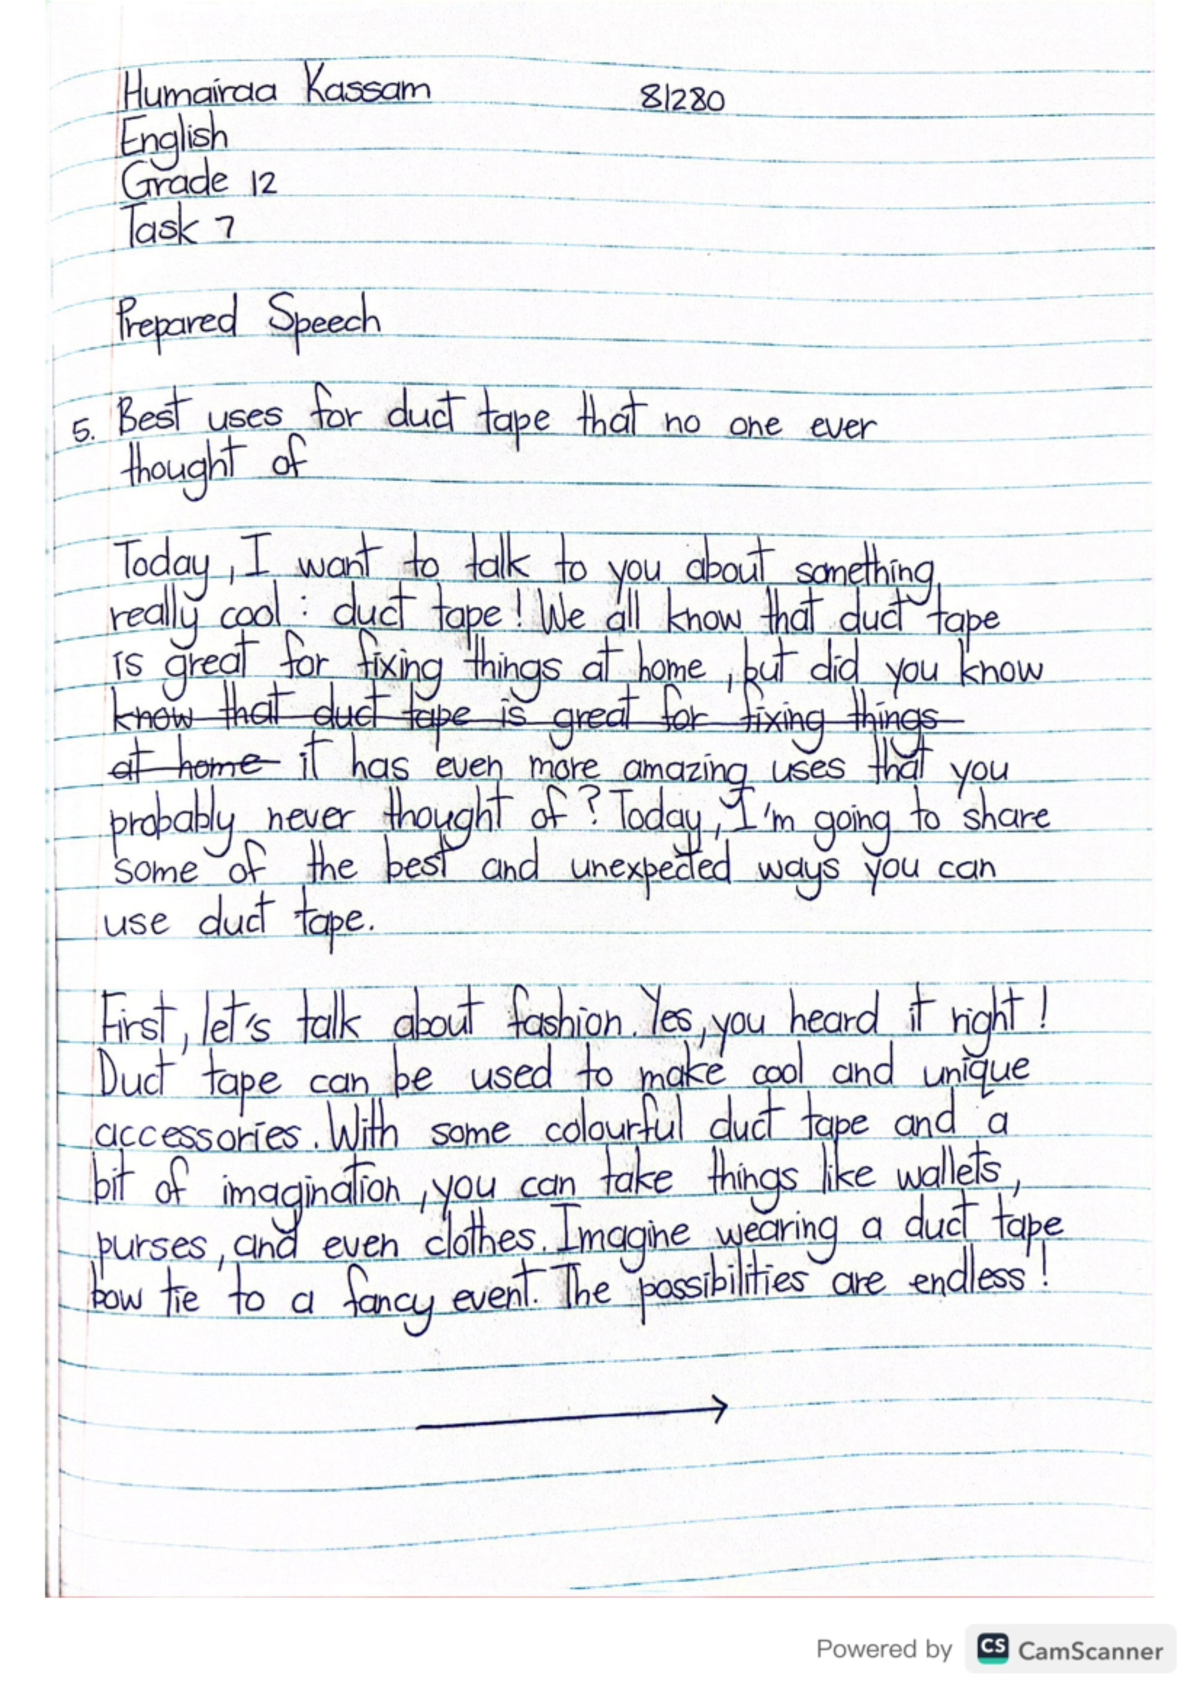 Humairaa Kassam 81280
English
Grade 12
Task 7
Prepared Speech
5. Best uses for duct tape that no one ever
thought of
Today, I want to talk to you about something
really cool : duct tape! We all know that duct tape
is great for fixing things at home, but did you know
know that duct tape is great for fixing things
at home it has even more amazing uses that you
probably never thought of? Today, I'm going to share
some of the best and unexpected ways you can
use duct tape.
First, let's talk about fashion. Yes, you heard it right!
Duct tape can be used to make cool and unique
accessories. With some colourful duct tape and a
bit of imagination, you can take things like wallets,
purses, and even clothes. Imagine wearing a duct tape
bow tie to a fancy event. The possibilities are endless!
Powered by CS CamScanner